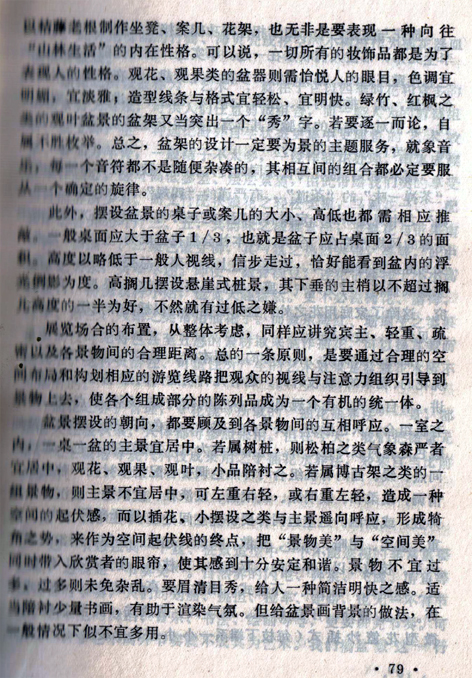 以枯藤老根制作坐凳、案几、花架，也无非是要表现一种向往
“山林生活”的内在性格。可以说，一切所有的妆饰品都是为了
表现人的性格。观花、观果类的盆器则需怡悦人的眼目，色调宜
明媚，宜淡雅；造型线条与格式宜轻松、宜明快。绿竹、红枫之
类的观叶盆景的盆架又当突出一个“秀”字。若要逐一而论，自
属不胜枚举。总之，盆架的设计一定要为景的主题服务，就象音
组，每一个音符都不是随便杂凑的，其相互间的组合都必定要服
从一个确定的旋律。
此外，摆设盆景的桌子或案几的大小、高低也都需相应推
敲。一般桌面应大于盆子1/3，也就是盆子应占桌面2/3的面
积。高度以略低于一般人视线，信步走过，恰好能看到盆内的浮
光倒影为度。高搁几摆设悬崖式桩景，其下垂的主梢以不超过搁
几高度的一半为好，不然就有过低之嫌。
展览场合的布置，从整体考虑，同样应讲究宾主、轻重、疏
密以及各景物间的合理距离。总的一条原则，是要通过合理的空
间布局和构划相应的游览线路把观众的视线与注意力组织引导到
景物上去，使各个组成部分的陈列品成为一个有机的统一体。
盆景摆设的朝向，都要顾及到各景物间的互相呼应。一室之
内，一桌一盆的主景宜居中。若属树桩，则松柏之类气象森严者
宜居中，观花、观果、观叶，小品陪衬之。若属博古架之类的一
组景物，则主景不宜居中，可左重右轻，或右重左轻，造成一种
空间的起伏感，而以插花、小摆设之类与主景遥向呼应，形成犄
角之势，来作为空间起伏线的终点，把“景物美”与“空间美”
同时带入欣赏者的眼帘，使其感到十分安定和谐。景物不宜过
多，过多则未免杂乱。要眉清目秀，给人一种简洁明快之感。适
当陪衬少量书画，有助于渲染气氛。但给盆景画背景的做法，在
一般情况下似不宜多用。
·79·